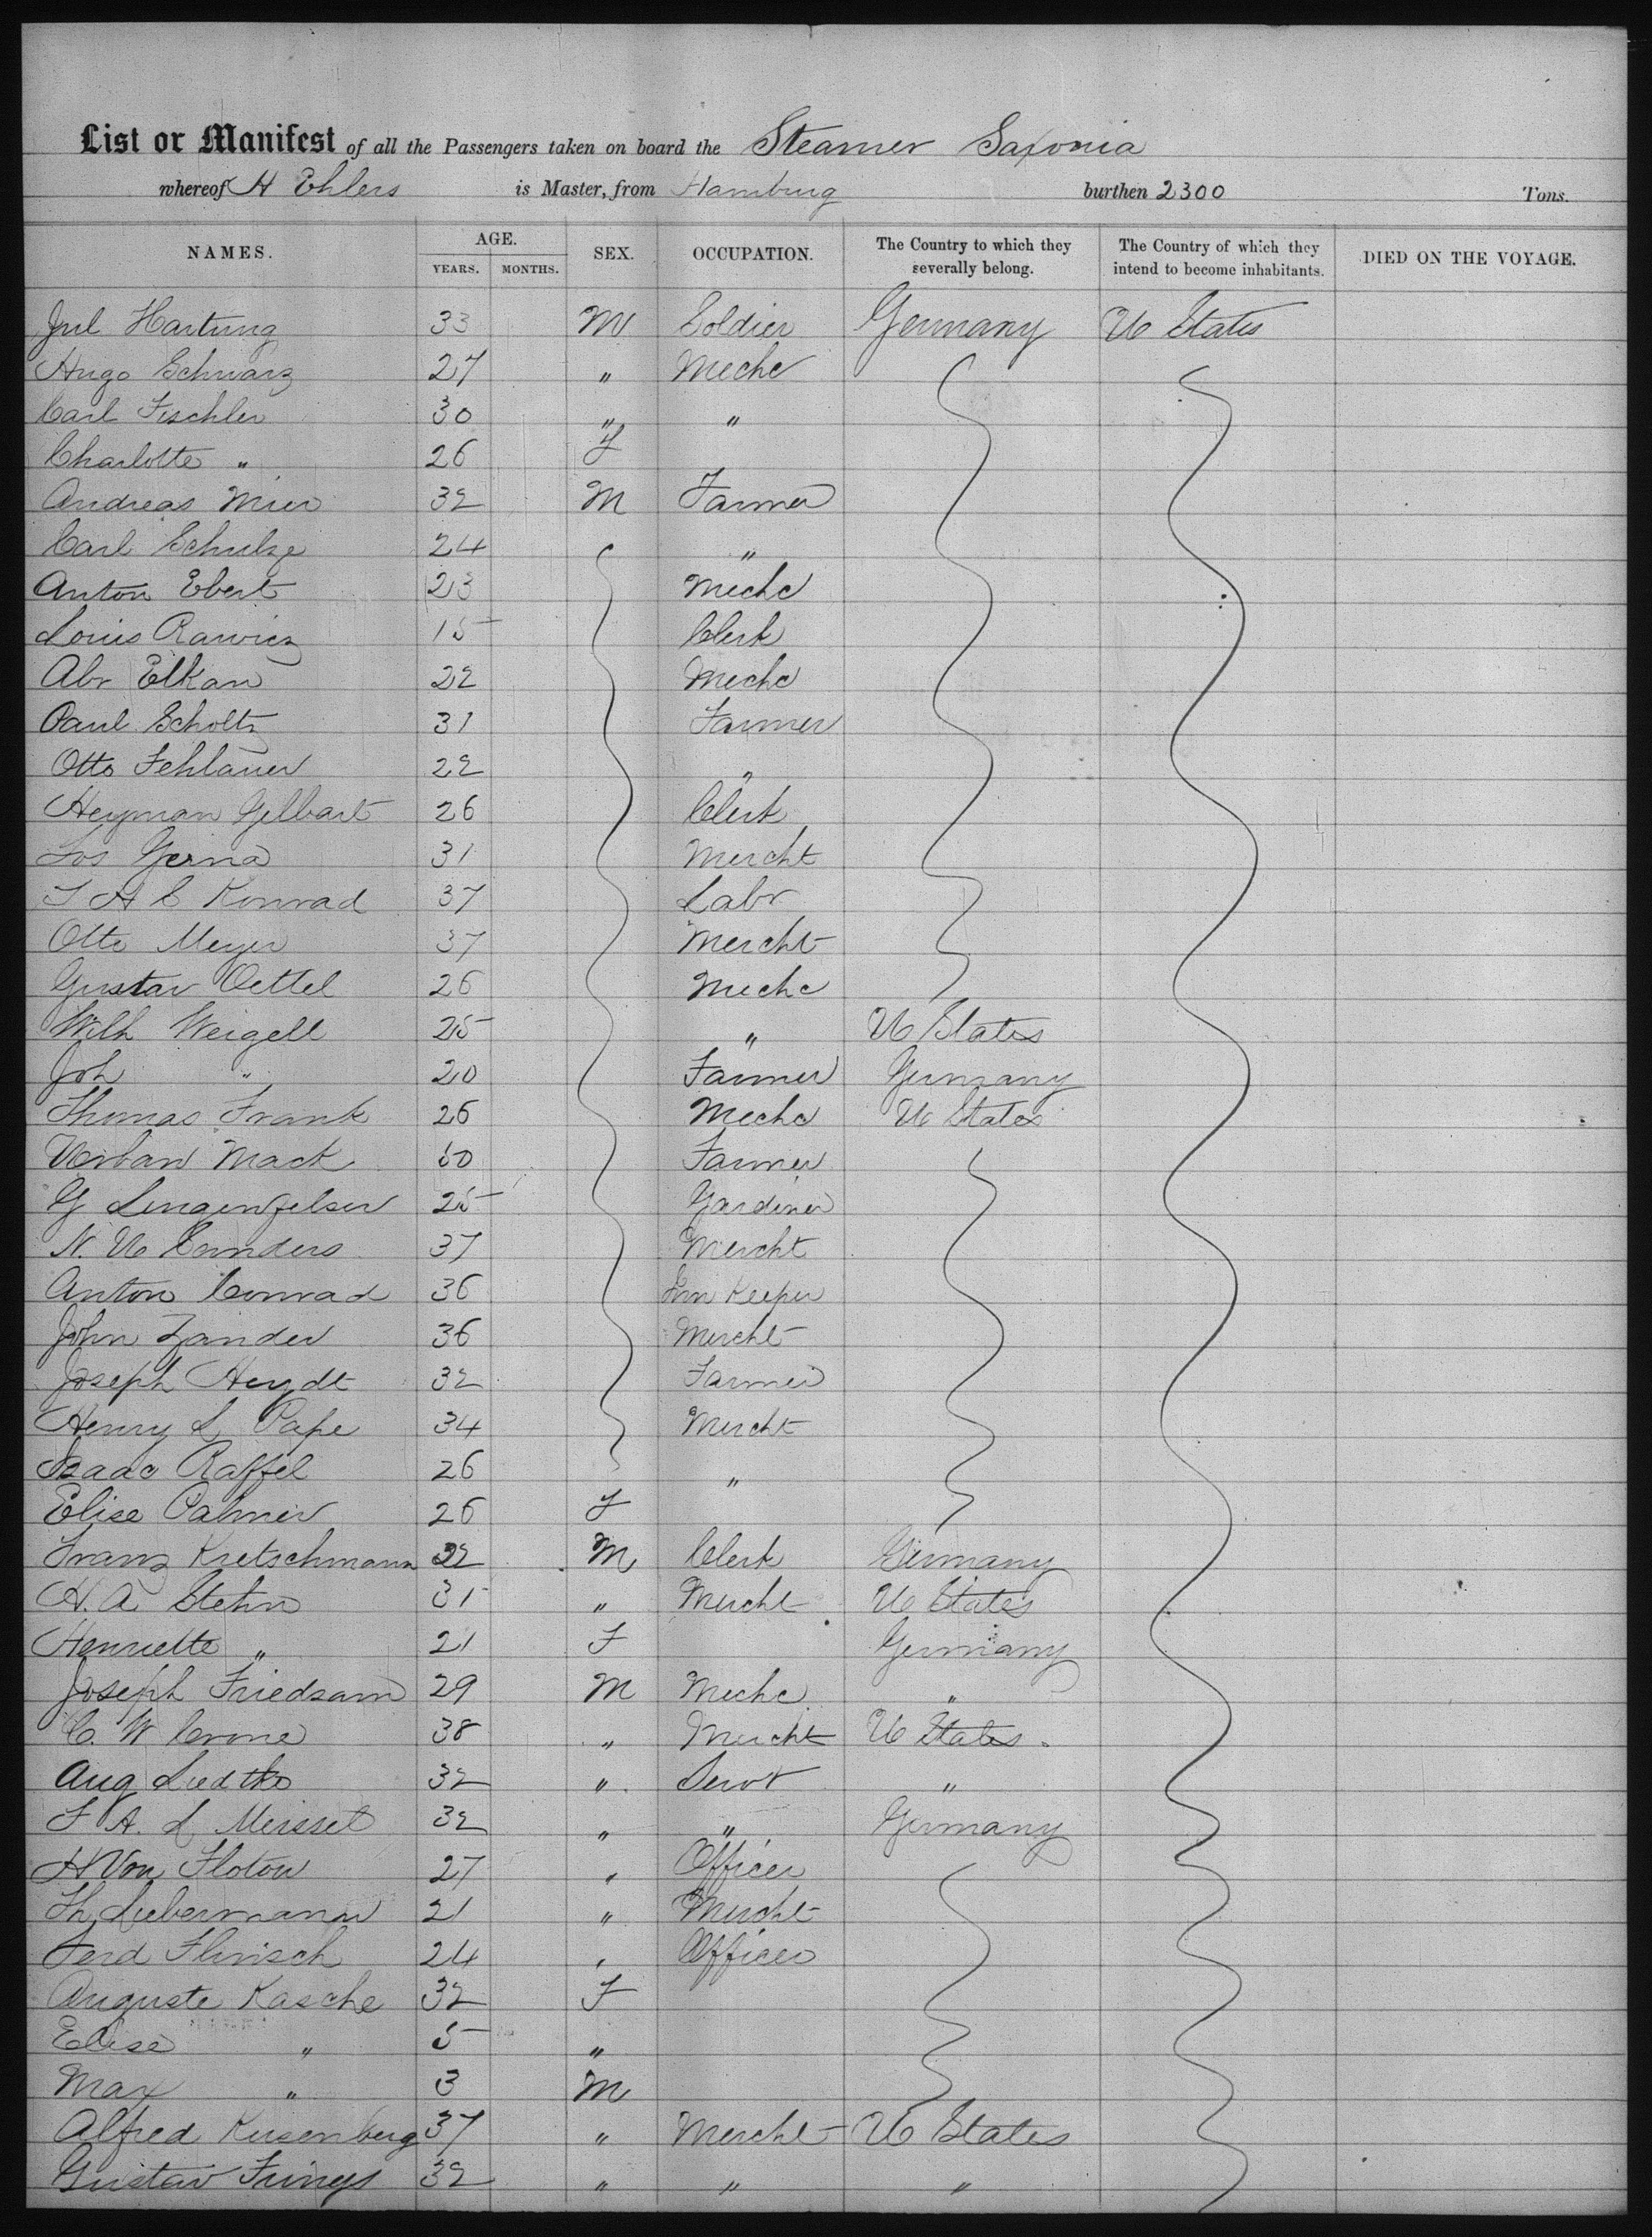 List or Manifest of all the Passengers taken on board the Steamer Saxonia
whereof H Ehlers is Master, from Hamburg burthen 2300 Tons.
NAMES. AGE. YEARS. MONTHS. SEX. OCCUPATION. The Country to which they severally belong. The Country of which they intend to become inhabitants. DIED ON THE VOYAGE.
Jul Hartung 33 M Soldier Germany U States
Hugo Schwarz 27 " Mechc
Carl Fischler 30 " "
Charlotte " 26 F
Andreas Mier 32 M Farmer
Carl Schulze 24 "
Anton Ebert 23 Mechc
Louis Rawicz 15 Clerk
Abr Elkan 22 Mechc
Paul Scholtz 31 Farmer
Otto Fehlauer 22 "
Heyman Gelbart 26 Clerk
Jos Gerna 31 Mercht
J A C Konrad 37 Labr
Otto Meyer 37 Mercht
Gustav Oettel 26 Mechc
Wilh Weigell 25 " U States
Joh " 20 Farmer Germany
Thomas Frank 26 Mechc U States
Urban Mack 50 Farmer
G Lingenfelser 25 Gardiner
N. U 37 Mercht
Anton Conrad 36 Inn Keeper
John Zander 36 Mercht
Joseph Heydt 32 Farmer
Henry L Pape 34 Mercht
Isaac Raffel 26 "
Elise Palmer 26 F
Franz Kretschmann 22 M Clerk Germany
H. A Stehn 31 " Mercht U States
Henriette " 21 F Germany
Joseph Friedsam 29 M Mechc "
C. W Crone 38 " Mercht U States
Aug Luedtke 32 " Servt "
F A. L Meissel 32 " " Germany
H Von Flotow 27 " Officer
Th Liebermann 21 " Mercht
Ferd Flinsch 24 " Officer
Auguste Kasche 32 F
Elise " 5 "
Max " 3 M
Alfred Kusenberg 37 " Mercht U States
Gustav Frings 32 " " "